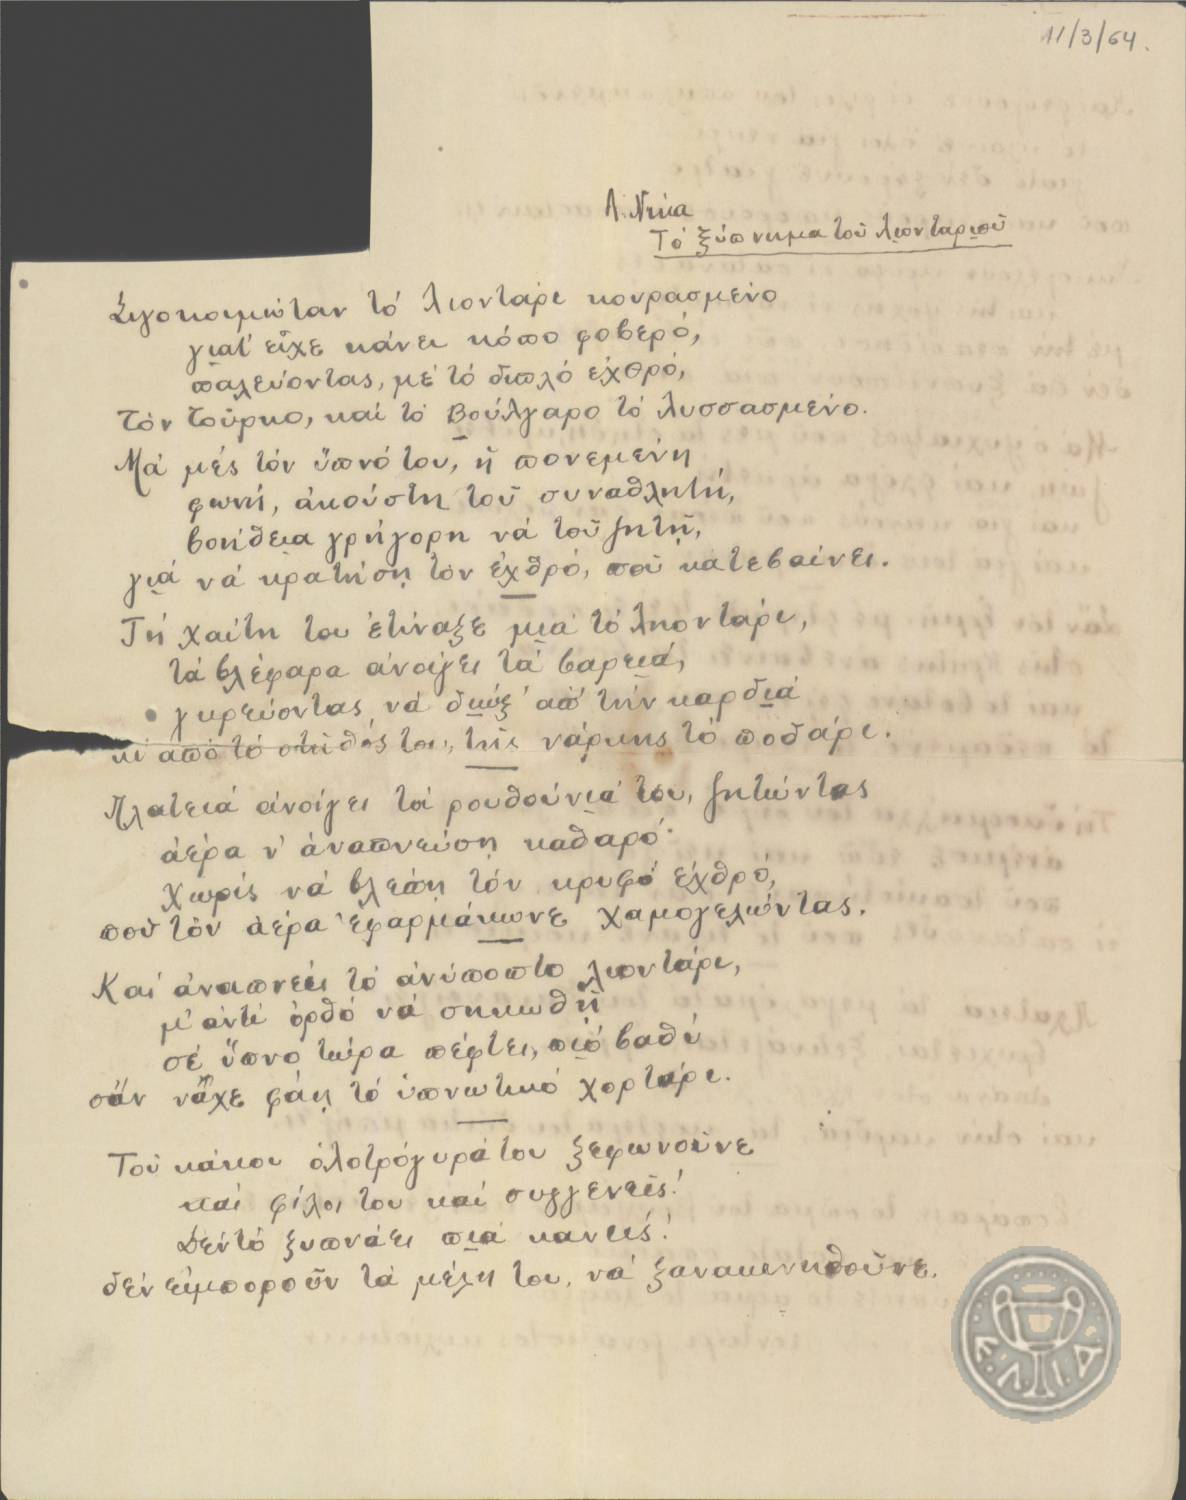 11/3/64.
Λ. Νίκα
Τό ξύπνημα τοῦ λιονταριοῦ
Σιγοκοιμώταν τό λιοντάρι κουρασμένο
γιατ' εἶχε κάνει κόπο φοβερό,
παλεύοντας, μέ τό διπλό ἐχθρό,
τόν Τοῦρκο, καί τό Βούλγαρο τό λυσσασμένο.
Μά μές τόν ὕπνό του, ἡ πονεμένη
φωνή, ἀκούστη τοῦ συναθλητή,
βοήθεια γρήγορη νά τοῦ ζητῆ,
γιά νά κρατήση τόν ἐχθρό, ποῦ κατεβαίνει.
Τή χαίτη του ἐτίναξε μιά τό ληοντάρι,
τά βλέφαρα ἀνοίγει τά βαρειά,
γυρεύοντας, νά διώξ' ἀπ' τήν καρδιά
κι' ἀπό τό στῆθός του, τῆς νάρκης τό ποδάρι.
Πλατειά ἀνοίγει τά ρουθούνιά του, ζητώντας
ἀέρα ν' ἀναπνεύση καθαρό·
χωρίς νά βλέπη τόν κρυφό ἐχθρό,
ποῦ τόν ἀέρα ἐφαρμάκωνε χαμογελώντας.
Καί ἀναπνέει τό ἀνύποπτο λιοντάρι,
μ' ἀντί ὀρθό νά σηκωθῆ
σέ ὕπνο τώρα πέφτει, πιό βαθύ
σάν νἆχε φάη τό ὑπνωτικό χορτάρι.
Τοῦ κάκου ὁλοτρόγυρά του ξεφωνοῦνε
καί φίλοι του καί συγγενεῖς!
Δέν τό ξυπνάει πιά κανείς!
δέν εἰμποροῦν τά μέλη του, νά ξανακινηθοῦνε.
Ε.Λ.Ι.Α